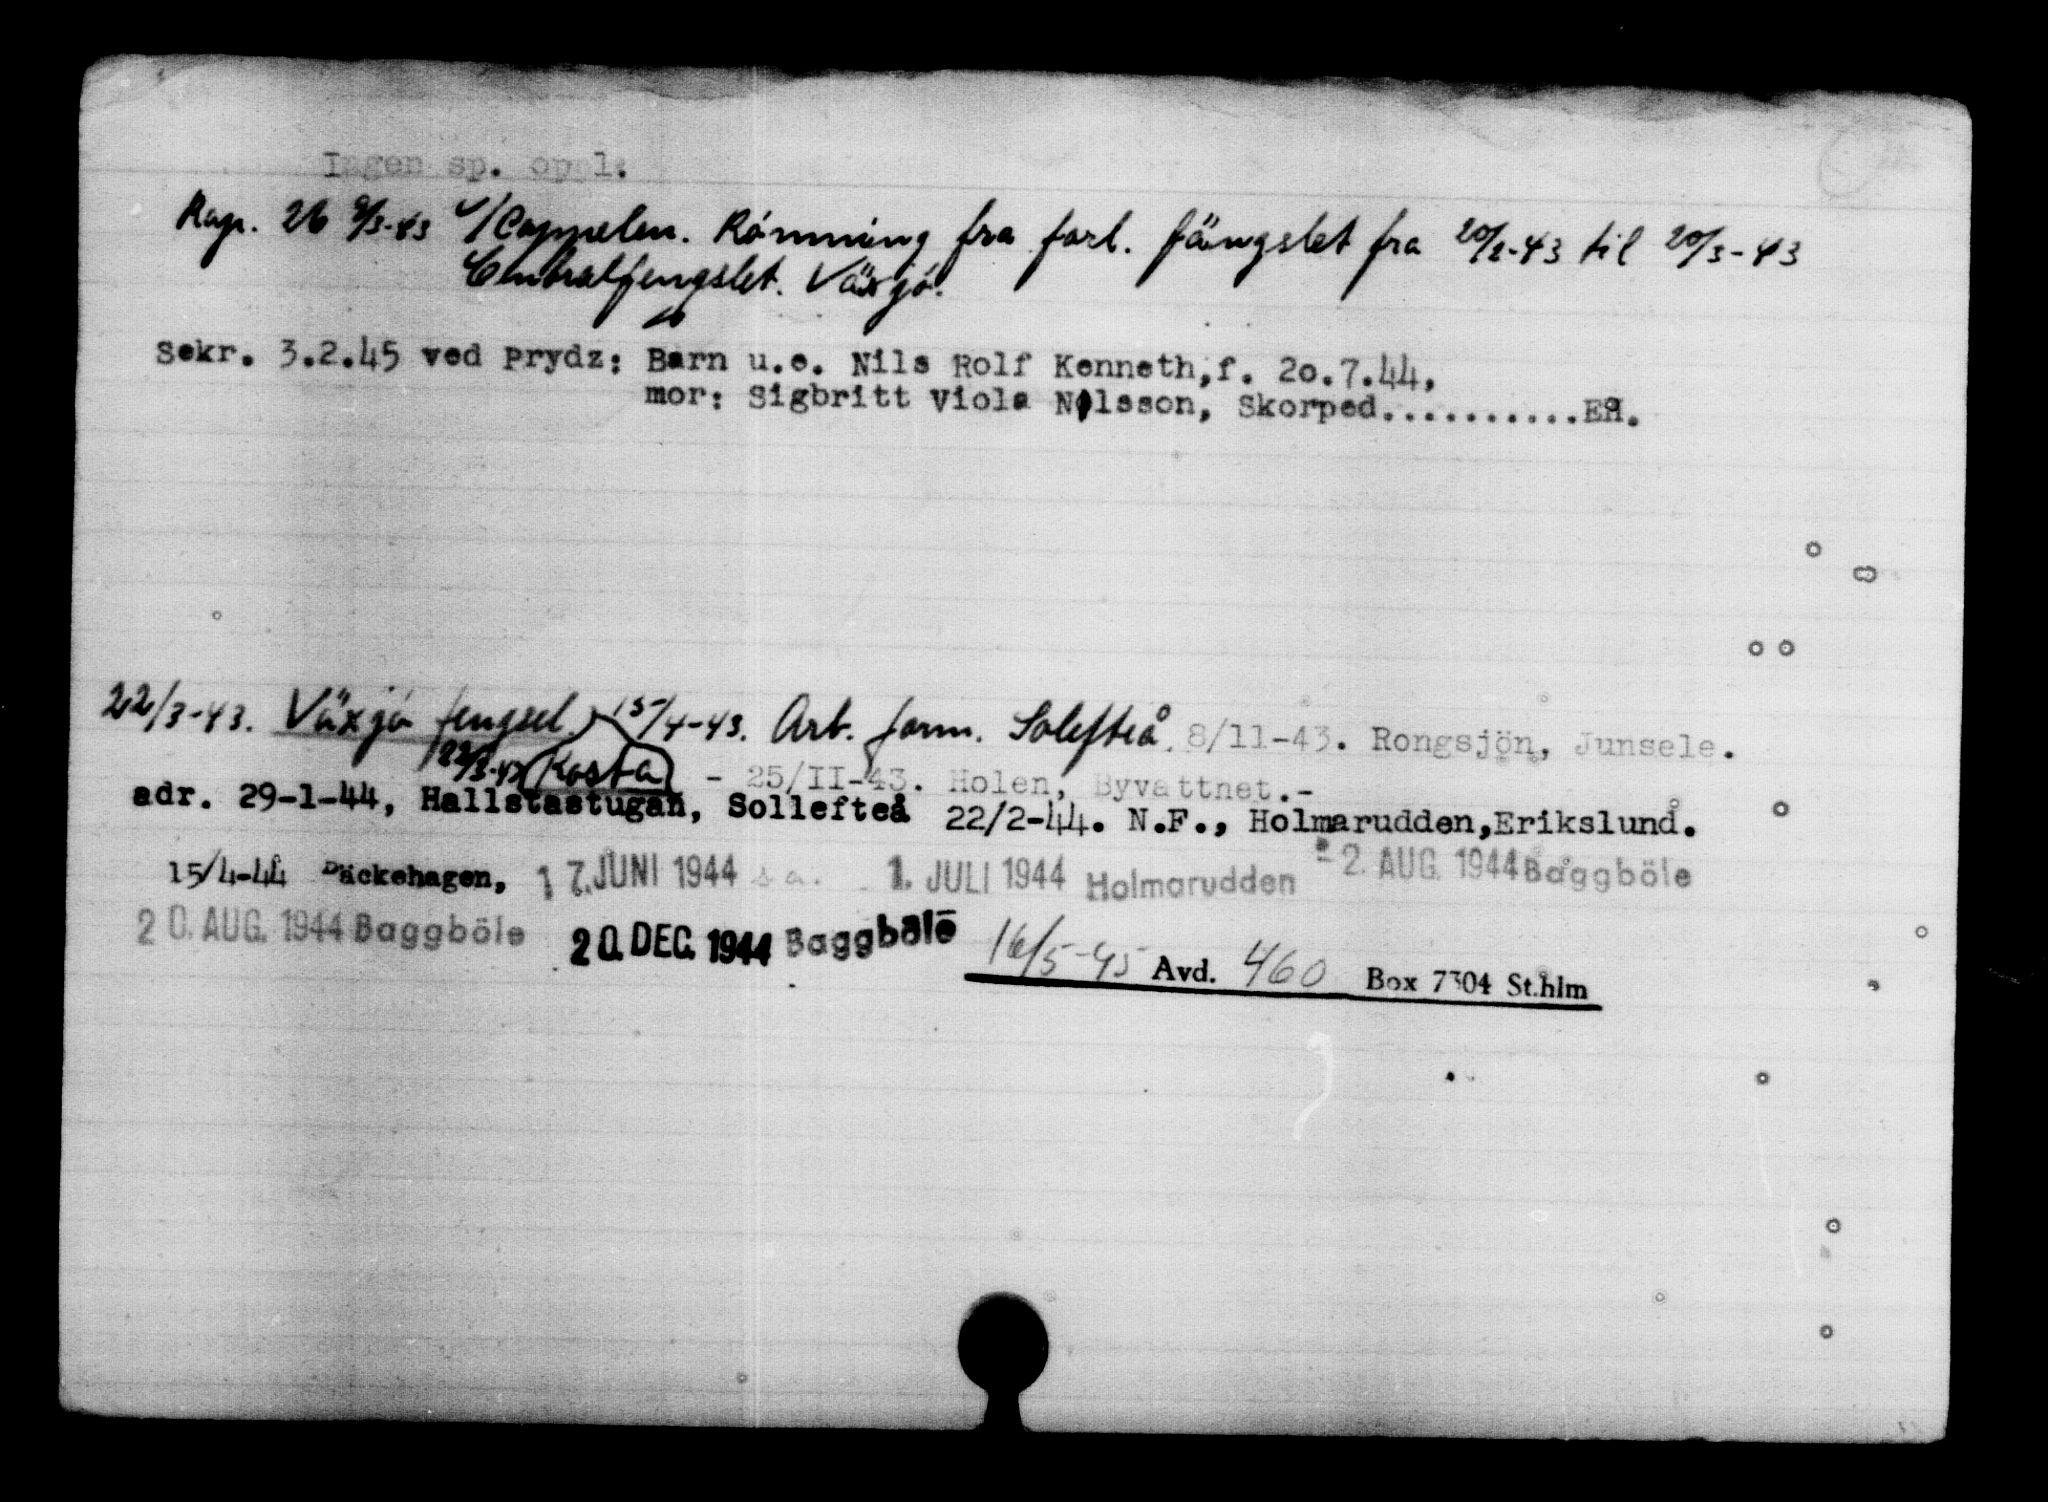 Ingen sp. oppl.
Rap. 26 9/3-43 v/Cappelen. Rømming fra forl. fängslet fra 20/2-43 til 20/3-43
Centralfengslet. Växjø.
Sekr. 3.2.45 ved Prydz: Barn u.e. Nils Rolf Kenneth, f. 20.7.44,
mor: Sigbritt Viola Nilsson, Skorped..........EH.
22/3-43. Växjø fengsel. 15/4-43. Arb. form. Solefteå. 8/11-43. Rongsjön, Junsele.
22/3-43 Kosta - 25/II-43. Holen, Byvattnet.-
adr. 29-1-44, Hallstastugan, Sollefteå 22/2-44. N.F., Holmarudden, Erikslund.
15/4-44 Däckehagen, 17. JUNI 1944 s a. 1. JULI 1944 Holmarudden -2. AUG. 1944 Baggböle
20. AUG. 1944 Baggböle 20. DEC. 1944 Baggböle 16/5-45 Avd. 460 Box 7304 St.hlm